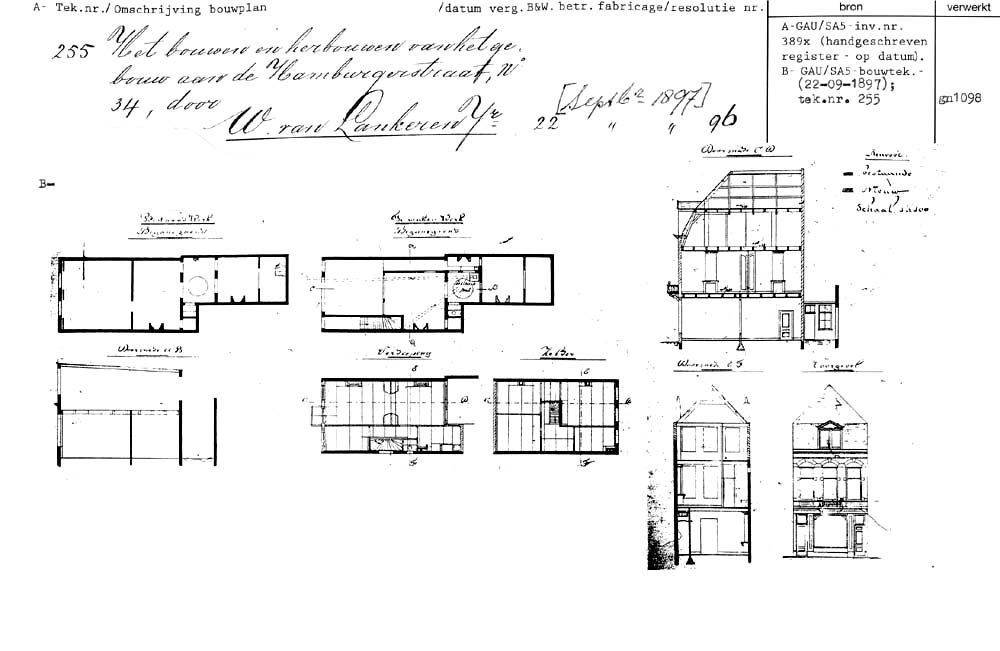 A- Tek.nr./Omschrijving bouwplan /datum verg.B&W.betr.fabricage/resolutie nr.
bron
verwerkt
255 Het bouwen en herbouwen van het ge-
bouw aan de Hamburgerstraat, No
34, door
W. van Lankeren Jr
[Septbr 1897]
22 " " 96
A-GAU/SA5-inv.nr.
389x (handgeschreven
register - op datum).
B- GAU/SA5-bouwtek.-
(22-09-1897);
tek.nr. 255
gn1098
B-
Bestaand Werk
Beganegrond
Te maken Werk
Beganegrond
Doorsnede C D
Renvooi.
bestaande
Nieuw
Schaal
Doorsnede A B
Verdieping
Zolder
Doorsnede E F
Voorgevel